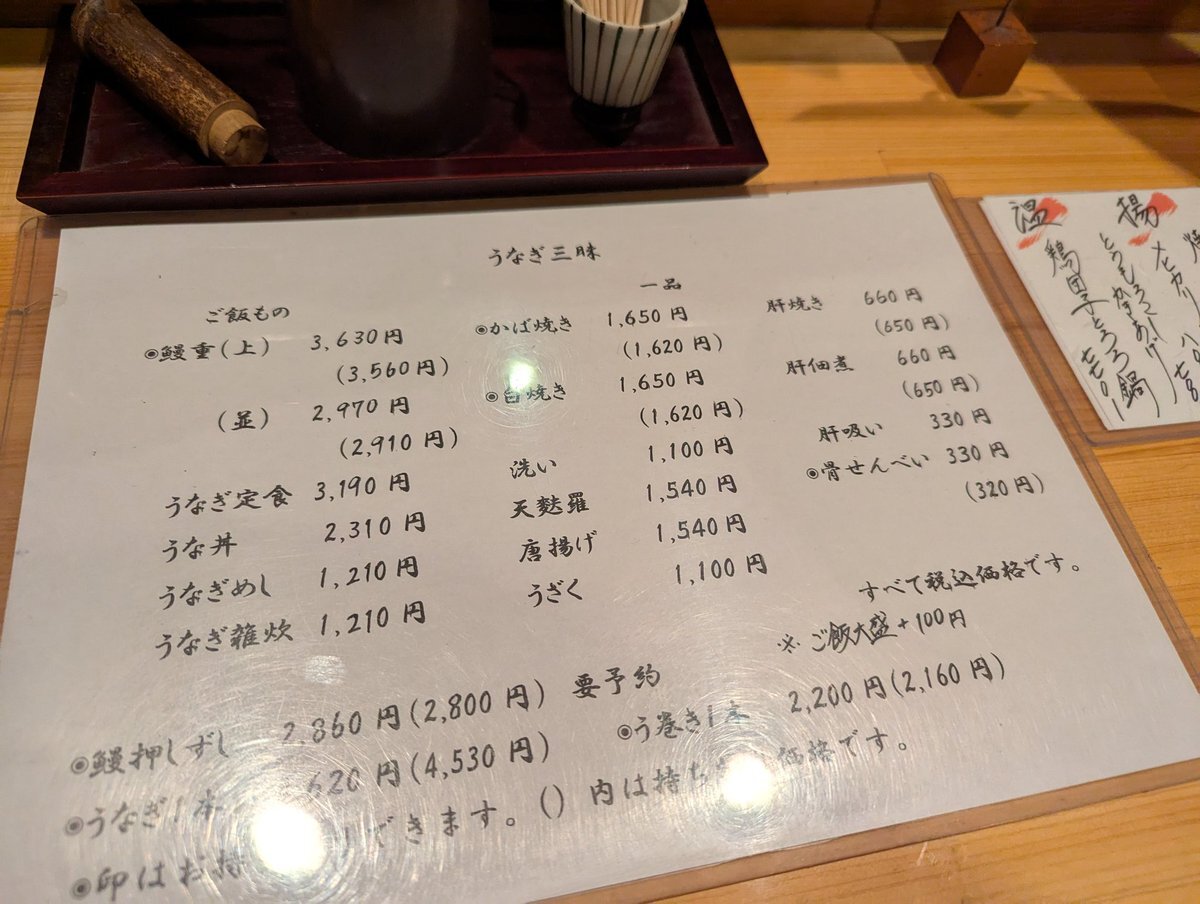 うなぎ三昧
ご飯もの
◉鰻重(上) 3,630円
(3,560円)
(並) 2,970円
(2,910円)
うなぎ定食 3,190円
うな丼 2,310円
うなぎめし 1,210円
うなぎ雑炊 1,210円
一品
◉かば焼き 1,650円
(1,620円)
◉白焼き 1,650円
(1,620円)
洗い 1,100円
天麩羅 1,540円
唐揚げ 1,540円
うざく 1,100円
肝焼き 660円
(650円)
肝佃煮 660円
(650円)
肝吸い 330円
◉骨せんべい 330円
(320円)
すべて税込価格です。
※ご飯大盛+100円
◉鰻押しずし 2,860円(2,800円) 要予約
◉う巻き1本 2,200円(2,160円)
◉うなぎ1本 620円(4,530円)
◉印はお持 できます。()内は持ち 価格です。
揚
とうもろこしかきあげ
メヒカリ
温
鶏団子とろろ鍋 七七〇